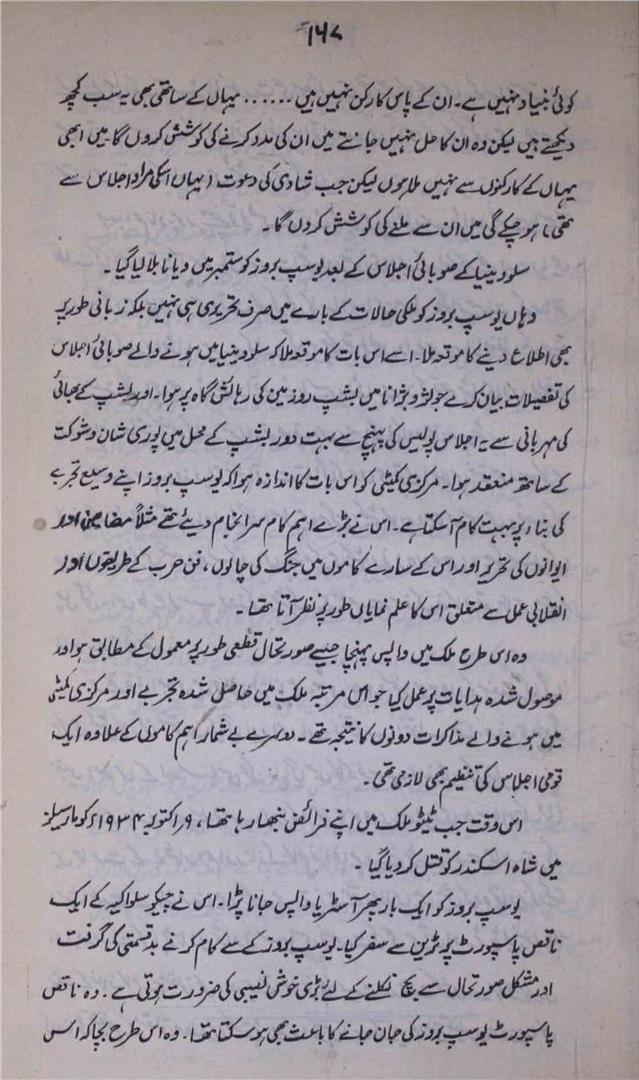 ۱۶۷
کوئی بنیاد نہیں ہے۔ ان کے پاس کارکن نہیں ہیں ...... یہاں کے ساتھی بھی یہ سب کچھ
دیکھتے ہیں لیکن وہ ان کا حل نہیں جانتے میں ان کی مدد کرنے کی کوشش کروں گا میں ابھی
یہاں کے کارکنوں سے نہیں ملا ہوں لیکن جب شادی کی دعوت (یہاں اسکی مراد اجلاس سے
تھی) ہو چکے گی میں ان سے ملنے کی کوشش کروں گا۔
سلووینیا کے صوبائی اجلاس کے بعد یوسپ بروز کو ستمبر میں ویانا بلا لیا گیا۔
وہاں یوسپ بروز کو ملکی حالات کے بارے میں صرف تحریری ہی نہیں بلکہ زبانی طور پر
بھی اطلاع دینے کا موقعہ ملا۔ اسے اس بات کا موقعہ ملا کہ سلووینیا میں ہونے والے صوبائی اجلاس
کی تفصیلات بیان کرے جو لژوبژانا میں بشپ روزمین کی رہائش گاہ پر ہوا۔ اور بشپ کے بھائی
کی مہربانی سے یہ اجلاس پولیس کی پہنچ سے بہت دور بشپ کے محل میں پوری شان و شوکت
کے ساتھ منعقد ہوا۔ مرکزی کمیٹی کو اس بات کا اندازہ ہوا کہ یوسپ بروز اپنے وسیع تجربے
کی بناء پر بہت کام آ سکتا ہے۔ اس نے بڑے اہم کام سرانجام دیئے تھے مثلاً مضامین اور
ایوانوں کی تحریر اور اس کے سارے کاموں میں جنگ کی چالوں، فن حرب کے طریقوں اور
انقلابی عمل سے متعلق اس کا علم نمایاں طور پر نظر آتا تھا۔
وہ اس طرح ملک میں واپس پہنچا جیسے صورتحال قطعی طور پر معمول کے مطابق ہو اور
موصول شدہ ہدایات پر عمل کیا جو اس مرتبہ ملک میں حاصل شدہ تجربے اور مرکزی کمیٹی
میں ہونے والے مذاکرات دونوں کا نتیجہ تھے۔ دوسرے بے شمار اہم کاموں کے علاوہ ایک
قومی اجلاس کی تنظیم بھی لازمی تھی۔
اس وقت جب ٹیٹو ملک میں اپنے فرائض نبھا رہا تھا، ۹ راکتوبر ۱۹۳۴ء کو مارسیلز
میں شاہ اسکندر کو قتل کر دیا گیا۔
یوسپ بروز کو ایک بار پھر آسٹریا واپس جانا پڑا۔ اس نے چیکو سلواکیہ کے ایک
ناقص پاسپورٹ پر ٹرین سے سفر کیا۔ یوسپ بروز کے سے کام کرنے بد قسمتی کی گرفت
اور مشکل صورتحال سے بچ نکلنے کے لئے بڑی خوش نصیبی کی ضرورت ہوتی ہے۔ وہ ناقص
پاسپورٹ یوسپ بروز کی جان جانے کا باعث بھی ہو سکتا تھا۔ وہ اس طرح بچا کہ اس